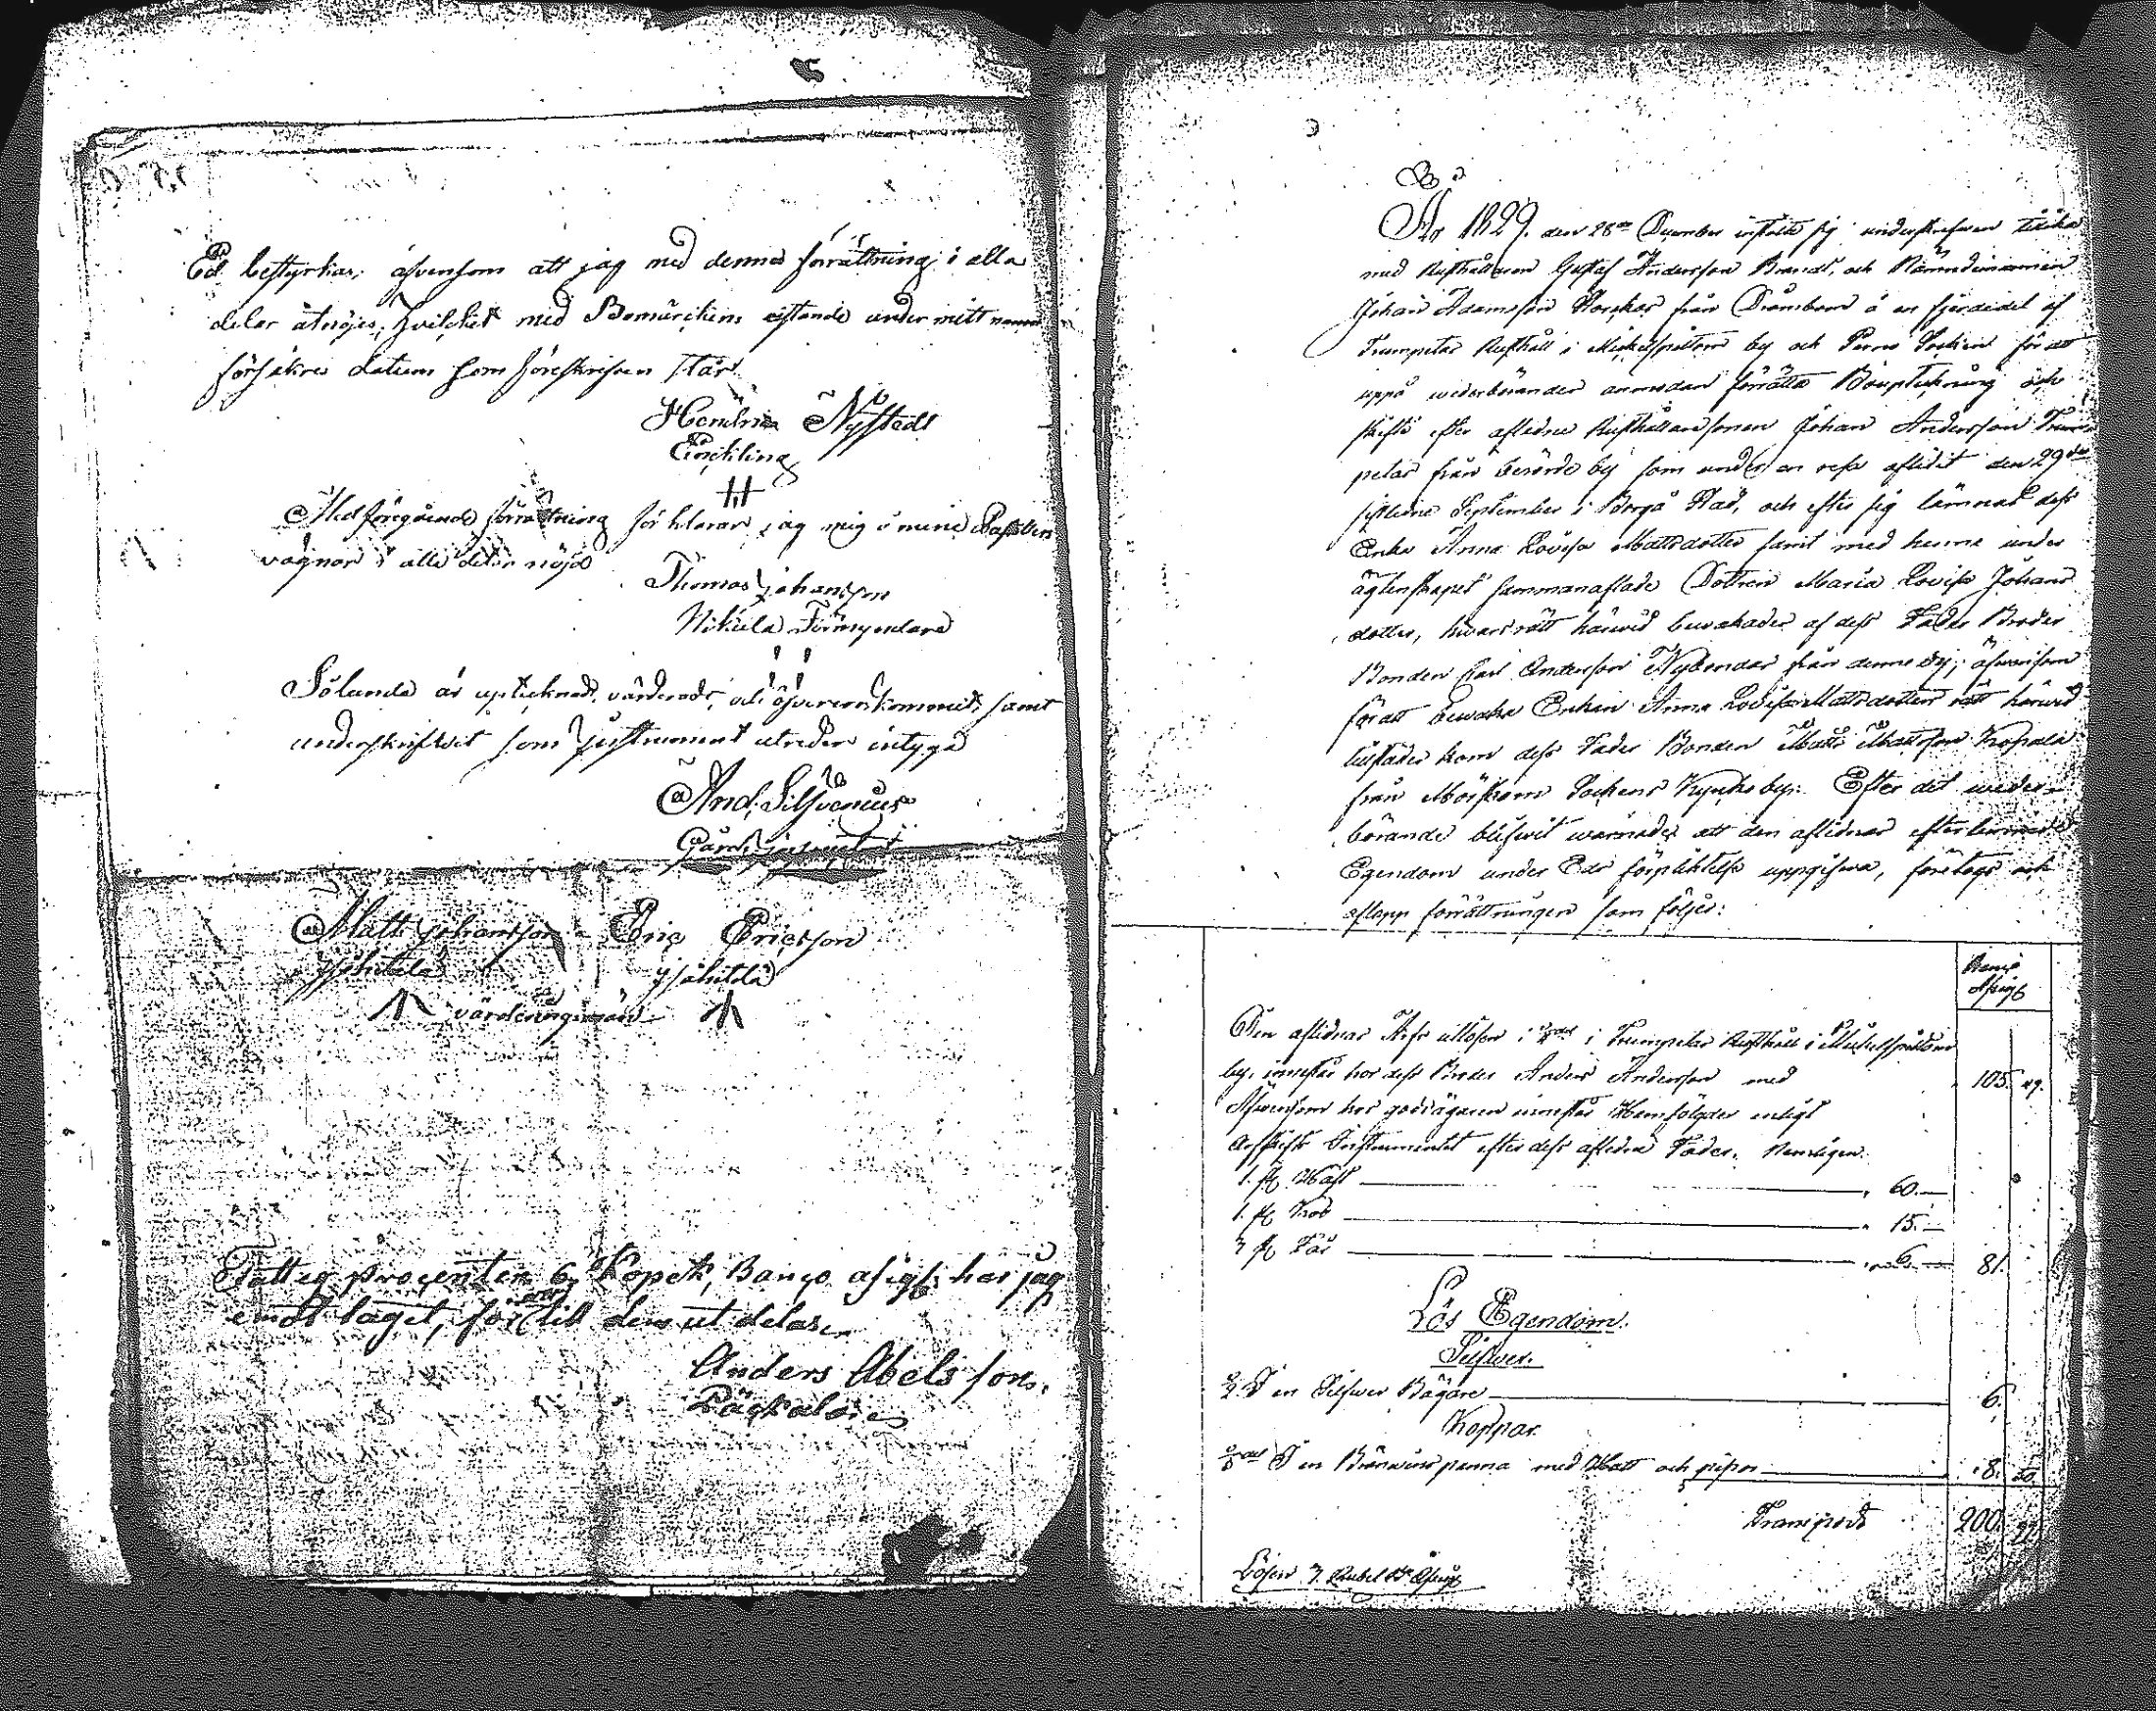 Ed bestyrkas, äfvensom att jag med denna förrättning i alla
delar åtnöjes, hvilcket med Bomärckens ristande under mitt namn
försäkras datum som föreskrifven står
Hendrica Nystedt
Enckling
Med föregående förrättning förklarar jag mig å mine
vägnar i alla delar nöjd
Thomas Johansson
Nikula Förmyndare
Sålunda är uptecknadt, värderadt, och öfverenskommit, samt
underskrifwit som Instrumentet utreder intyga
And. Silfvenius
Matts Johansson Eric Ericsson
värderingsmän
Fattig procenten 6 Kopek, Banco Assign: har jag
emot taget, för att till dem ut delas.
Anders Abelsson.
År 1829. den 28de December instälte sig undertecknad
med Rusthållaren Gustaf Andersson Brandt, och Nämndemannen
Johan Adamsson från Drömbom å en fjerdedel af
Trumpetar Rusthåll i Mickelspiltom by och Perno Sockn för att
uppå wederbörandes anmodan förrätta Bouptekning och
skifte efter aflidne Rusthållaresonen Johan Andersson Trum
petar från berörde by som under en resa aflidit den 29de
sistledne September i Borgå Stad, och efter sig lämnat dess
Enka Anna Lovisa Mattsdotter samt med henne under
ägtenskapet sammanaflade Dotren Maria Lovisa Johans
dotter, hwars rätt härwid bewakades af dess Fader Broder
Bonden Carl Andersson Nybondas från denne by, äfwensom
för att bewaka Enkan Anna Lovisa Mattsdotters rätt härwid
tillstädes kom dess Fader Bonden Matts Mattsson
från Mörskom Sockens by. Efter det weder-
börande blifwit warnade att den aflidnas efterlemnade
Egendom under Eds förpliktelse uppgifwa, företogs och
aflopp förrättningen som följer:
Banco
Assign
Den aflidnas Arfs utlösen i Trumpetar Rusthåll i Mickelspiltom
by, innestår hos dess Broder Anders Andersson med 105.
Äfwensom hos godsägaren innestår Hemföljder enligt
Arfskifts Instrumentet efter dess aflidne Fader, Nemligen:
1. st. Häst 60.—
1. st. Ko 15.—
3 st. Får 6.— 81.
Lös Egendom.
Silfwer.
en Silfwer Bägare 6.
Koppar.
i en Bränwins panna med Hatt och pipor 8.
Transport 200.
Lösen 3. Rubel Assign